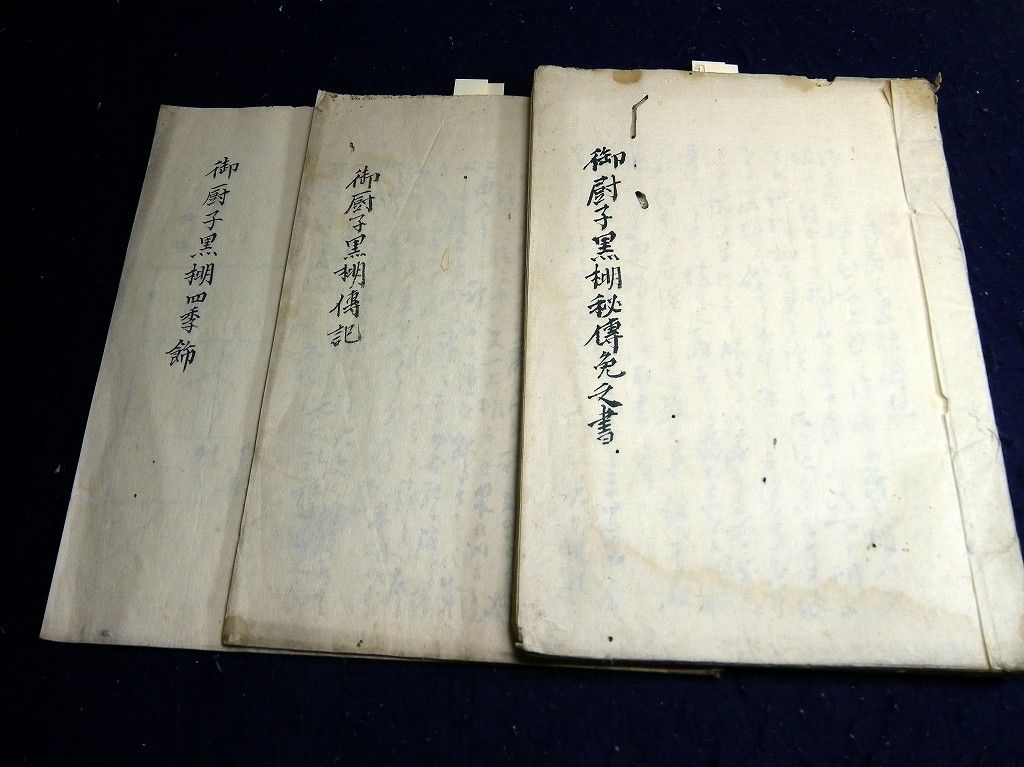 御厨子黒棚秘傳免之書
御厨子黒棚傳記
御厨子黒棚四季飾